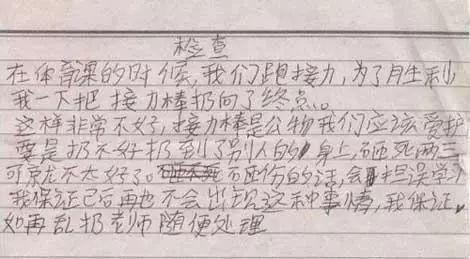 检查
在体育课的时候,我们跑接力,为了月生利
我一下把接力棒扔向了终点。
这样非常不好,接力棒是公物我们应该爱护
要是扔不好扔到了别人的身上,砸死两三
可就太不太好了。砸伤的话,会耽误学习
我保证已后再也不会出现这种事情,我保证。
如再乱扔老师随便处理